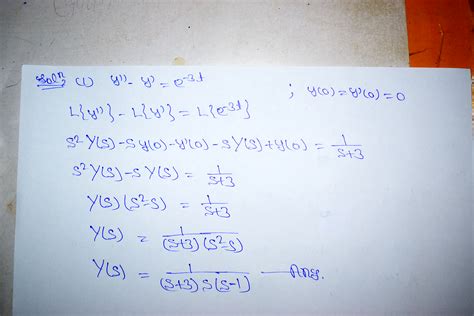 Solⁿ; (1) y'' - y' = e^-3t ; y(0) = y'(0) = 0
L{y''} - L{y'} = L{e^-3t}
s² Y(s) - s y(0) - y'(0) - s Y(s) + y(0) = 1/(s+3)
s² Y(s) - s Y(s) = 1/(s+3)
Y(s) (s² - s) = 1/(s+3)
Y(s) = 1/((s+3) (s² - s))
Y(s) = 1/((s+3) s (s-1)) — Ans.